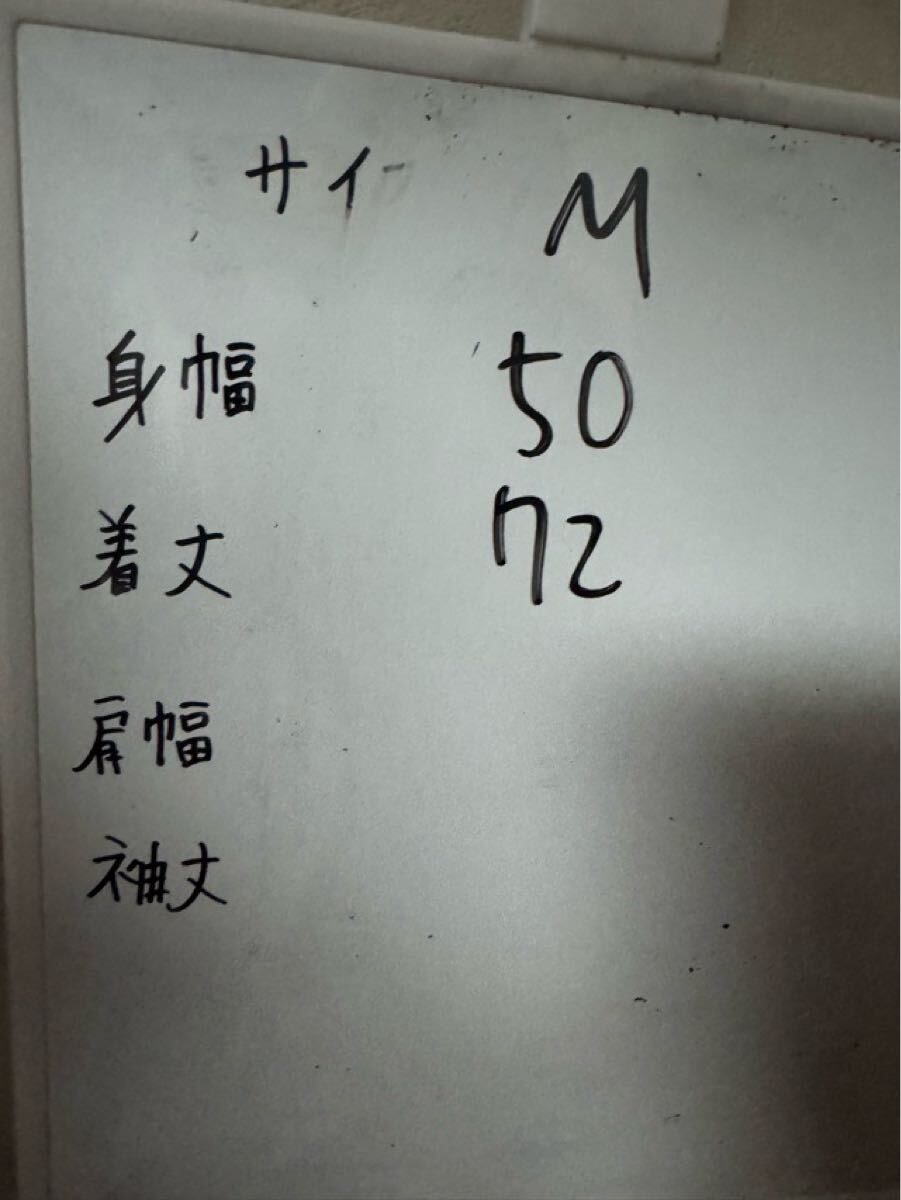 サイ M
身幅 50
着丈 72
肩幅
袖丈